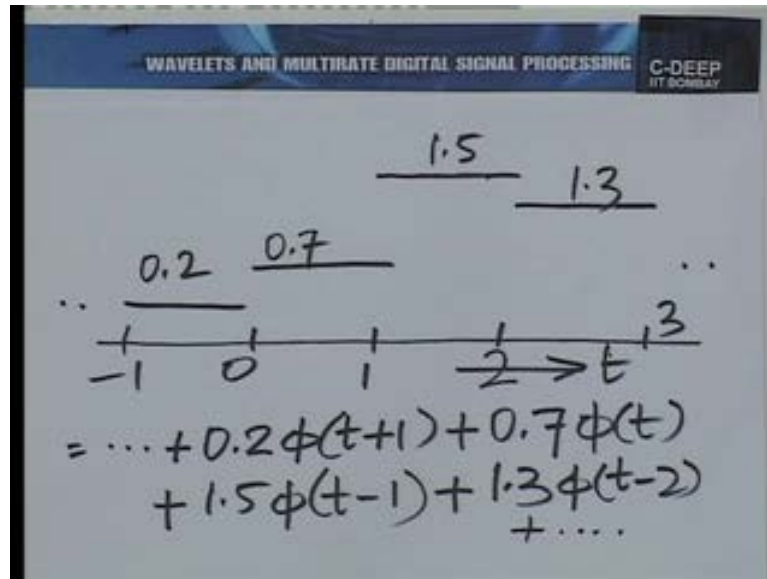 WAVELETS AND MULTIRATE DIGITAL SIGNAL PROCESSING
C-DEEP
IIT BOMBAY
1.5
1.3
0.7
0.2
.. ..
-1 0 1 2 → t 3
= ... + 0.2 ϕ(t+1) + 0.7 ϕ(t)
+ 1.5 ϕ(t-1) + 1.3 ϕ(t-2)
+ ....